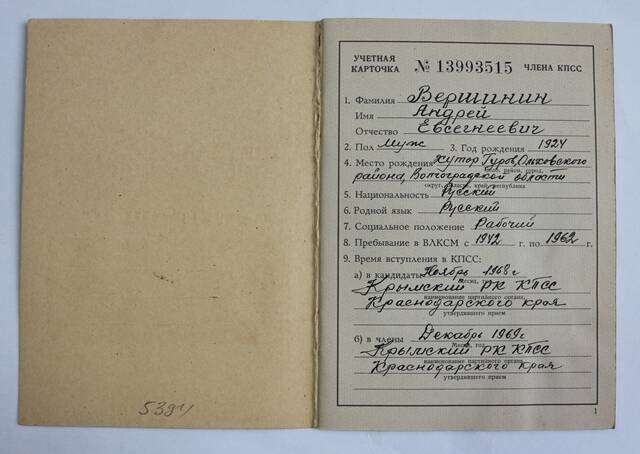 УЧЕТНАЯ КАРТОЧКА № 13993515 ЧЛЕНА КПСС
1. Фамилия Вершинин
Имя Андрей
Отчество Евсегнеевич
2. Пол Муж 3. Год рождения 1924
4. Место рождения хутор Гуров, Ольховского
село, район, город,
района, Волгоградской области
округ, область, край, республика
5. Национальность Русский
6. Родной язык Русский
7. Социальное положение Рабочий
8. Пребывание в ВЛКСМ с 1942 г. по 1962 г.
9. Время вступления в КПСС:
а) в кандидаты Ноябрь 1968 г
Месяц,
Крымский РК КПСС
наименование партийного органа,
Краснодарского края
утвердившего прием
б) в члены Декабрь 1969 г
Месяц, год
Крымский РК КПСС
наименование партийного органа
Краснодарского края
утвердившего прием
1